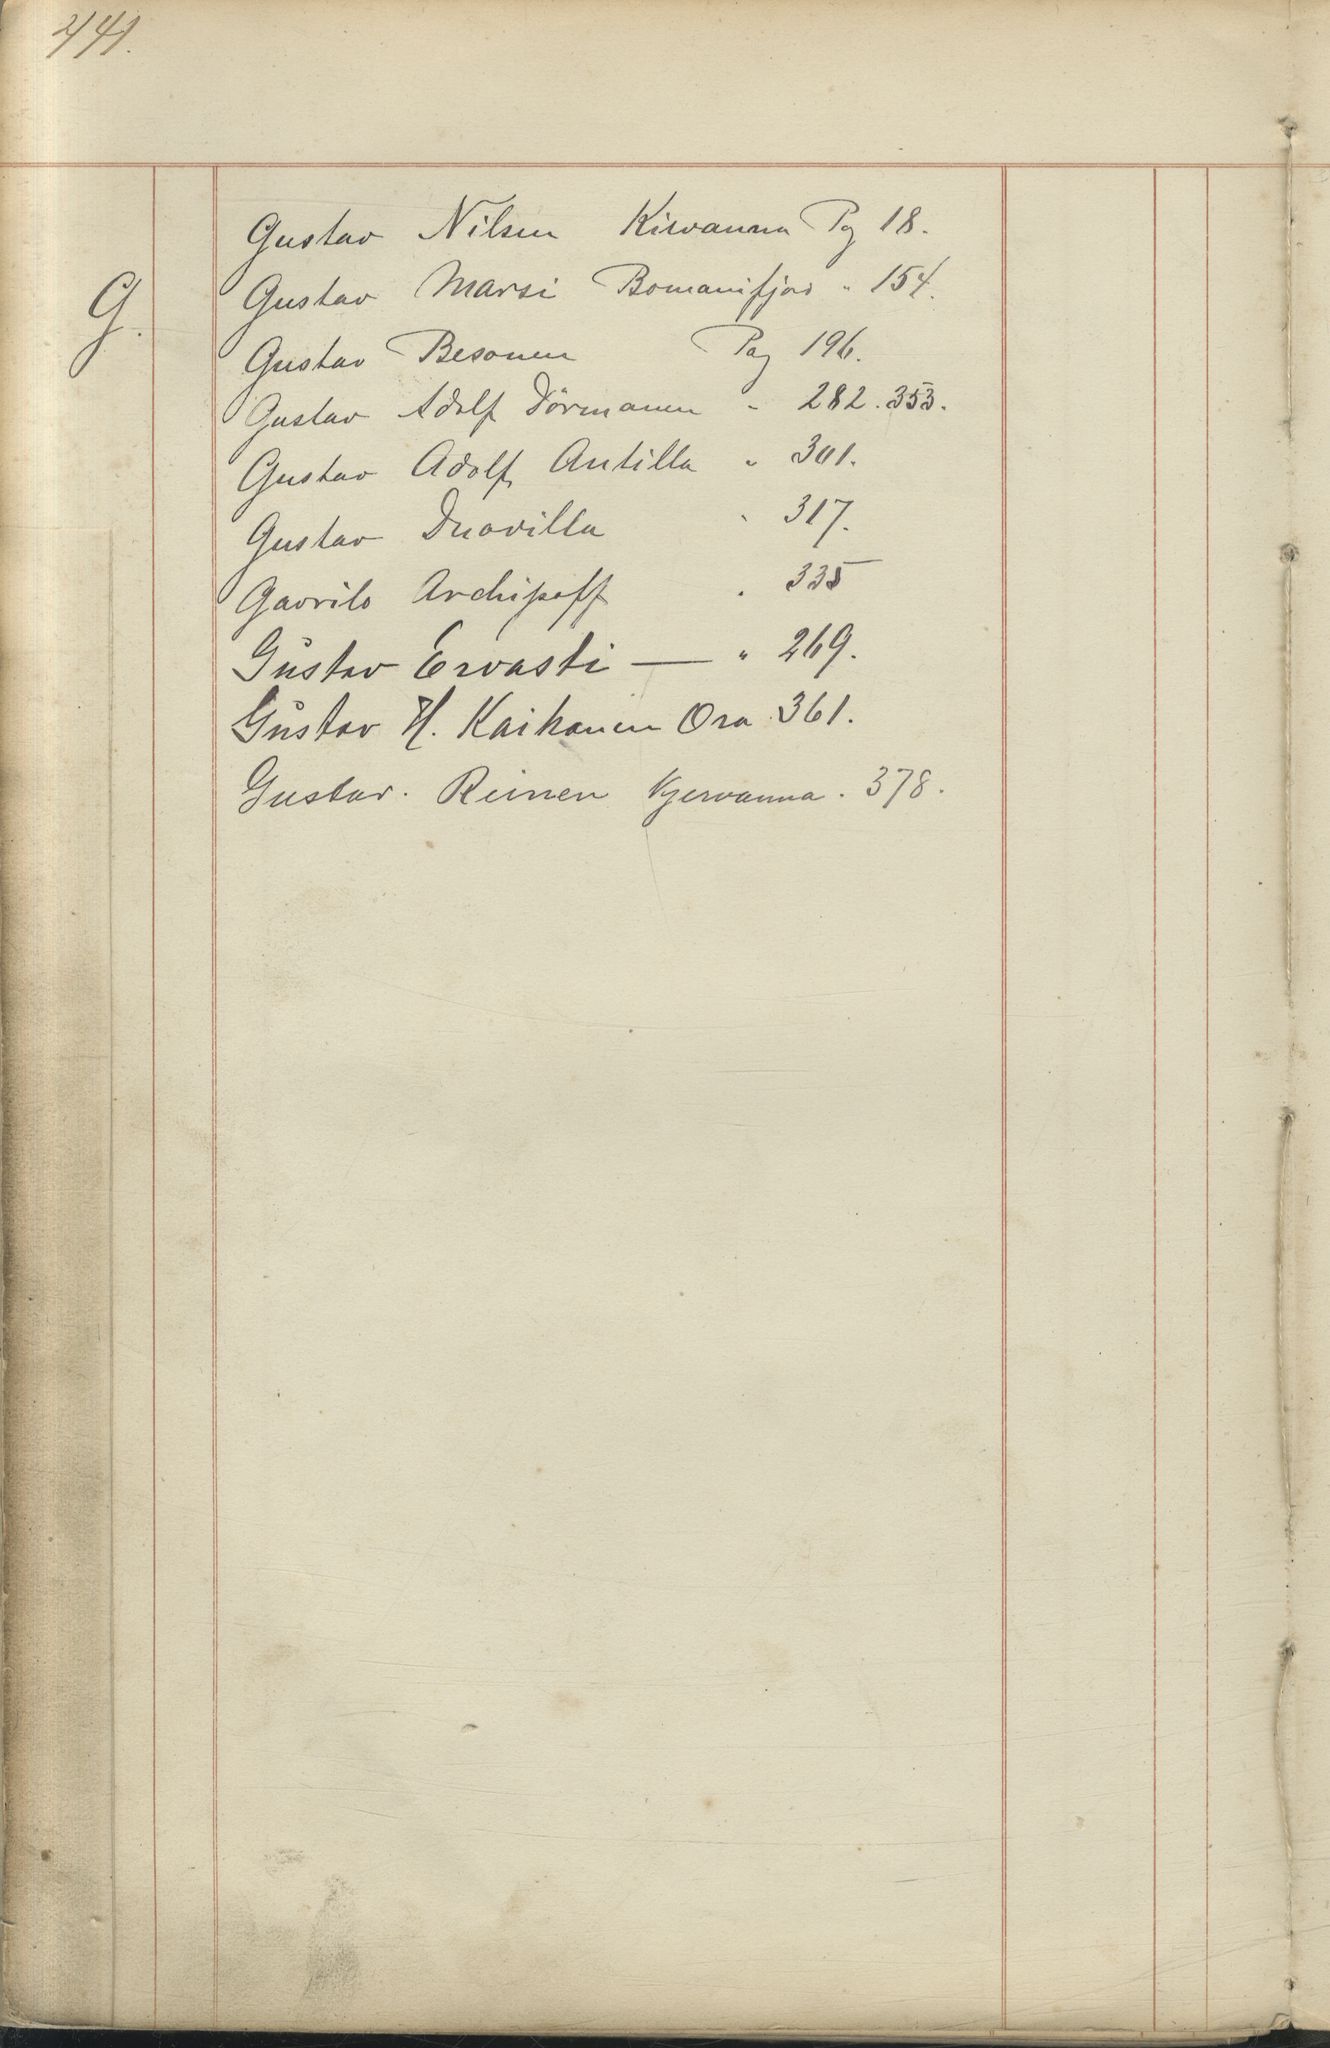 441.
G.
Gustav Nilsen Kirvanna Pg 18.
Gustav Marsi Bomanifjord " 154.
Gustav Besonen Pag 196.
Gustav Adolf Dörmanen " 282. 353.
Gustav Adolf Antilla " 301.
Gustav Duovilla " 317.
Gavrilo Archipoff " 335
Gustav Ervasti — " 269.
Gustav H. Kaihanen Ora 361.
Gustav. Reinen Kjervanna. 378.